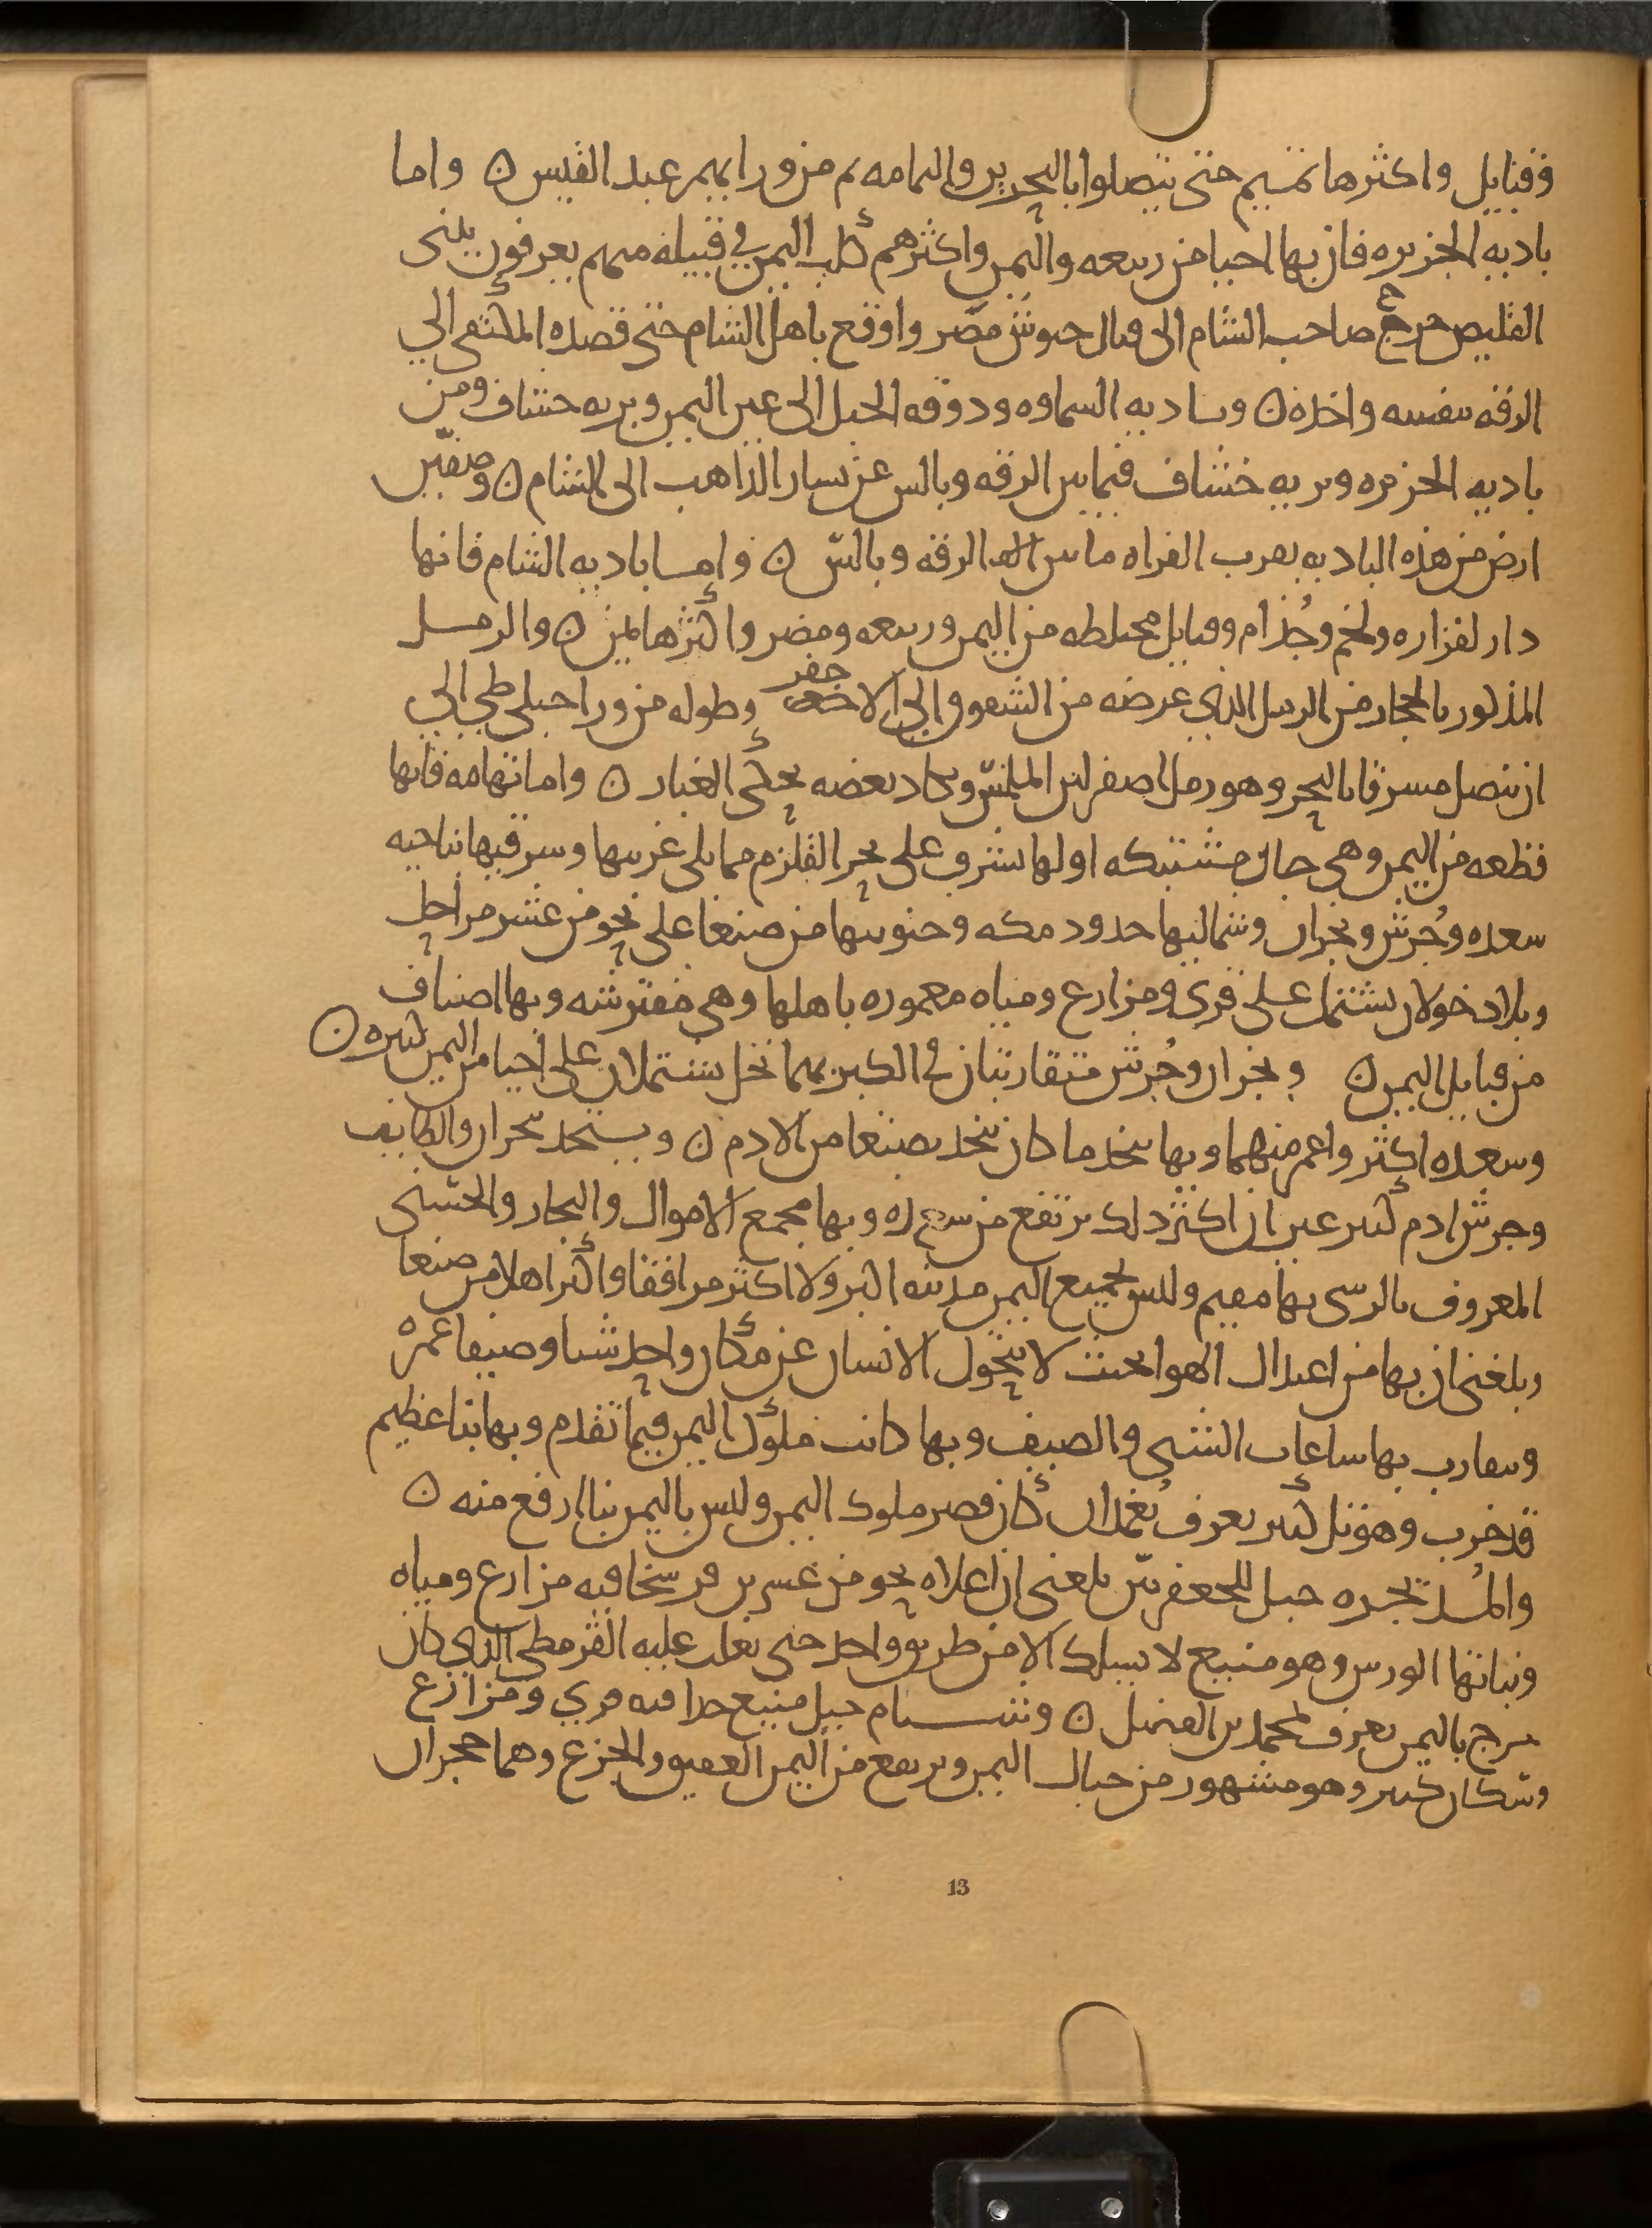 وقبايل واكثرها تميم حتى يتصلوا بالبحرين واليمامه ثم من ورايهم عبد القيس ن واما
باديه الجزيره فان بها احيا من ربيعه واليمن واكثرهم كلب اليمن في قبيله منهم يعرفون ببنى
القليص خرج صاحب الشام الى قتال جيوش مصر واوقع باهل الشام حتى قصده المكتفى الي
الرقه بنفسه واخذه ن وباديه السماوه ودومه الجندل الى عين اليمن وبريه خشاف ومن
باديه الجزيره وبريه خشاف فيما بين الرقه وبالس عن يسار الذاهب الى الشام ن وصفين
ارض من هذه الباديه بقرب الفراه ما بين الرقه وبالس ن واما باديه الشام فانها
دار لفزاره ولخم وجُذام وقبايل مختلطه من اليمن وربيعه ومضر واكثرها يمن ن والرمل
المذكور بالحجاز من الرمل الذي عرضه من الشقوق الى الاجفر وطوله من ورا جبلى طي الي
ان يتصل مشرقا بالبحر وهو رمل اصفر لين الملمس ويكاد بعضه يحكى الغبار ن واما تهامه فانها
قطعه من اليمن وهى جبال مشتبكه اولها يشرف على بحر القلزم مما يلى غربيها وشرقيها بناحيه
سعده وجُرش ونجران وشماليها حدود مكه وجنوبيها من صنعا على نحو من عشر مراحل
وبلاد خولان يشتمل على قرى ومزارع ومياه معموره باهلها وهى مفترشه وبها اصناف
من قبايل اليمن ن ونجران وجُرش متقاربتان في الكبر بهما نخل يشتملان على احيا من اليمن كثيره ن
وسعده اكثر واعم منهما وبها يتخذ ما كان يتخذ بصنعا من الادم ن ويتخذ بنجران والطايف
وجرش ادم كثير غير ان اكثر ذلك يرتفع من سعده وبها مجمع الاموال والتجار والحسنى
المعروف بالرسى بها مقيم وليس بجميع اليمن مدينه اكبر ولا اكثر مرافقا واكثر اهلا من صنعا
وبلغنى ان بها من اعتدال الهوا بحيث لا يتحول الانسان عن مكان واحد شتا وصيفا عمره
ويتقارب بها ساعات الشتى والصيف وبها كانت ملوك اليمن فيما تقدم وبها بنا عظيم
قد خرب وهو تل كثير يعرف بُغمدان كان قصر ملوك اليمن وليس باليمن بنا ارفع منه ن
جبل للجعفريين بلغنى ان اعلاه نحو من عشرين فرسخا فيه مزارع ومياه
ونباتها الورس وهو منيع لا يسلك الا من طريق واحد حتى تغلب عليه القرمطى الذي كان
خرج باليمن يعرف بمحمد بن الفضل ن وشبام جبل منيع جدا فيه قري ومزارع
وسكان كثير وهو مشهور من جبال اليمن ويرتفع من اليمن العقيق والجزع وهما حجران
13